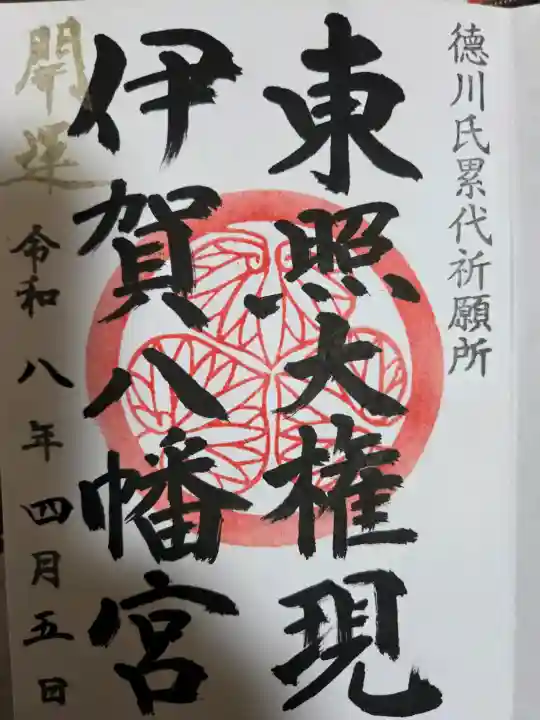 徳川氏累代祈願所
東照大権現
伊賀八幡宮
開運
令和八年四月五日